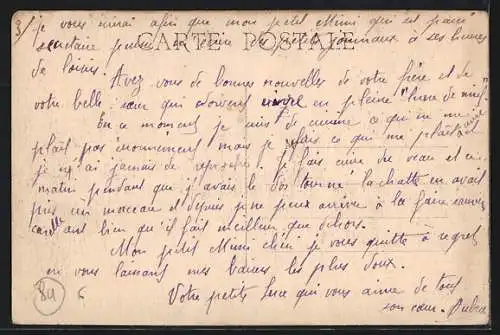 3)
je vous aimai afin que mon petit Mimi qui est
secrétaire puisse écrire des journaux à ses heures
CARTE POSTALE
de loisirs. Avez vous de bonnes nouvelles de votre frère et de
votre belle-sœur qui doivent vivre en pleine "lune de miel"
En ce moment je suis de cuisine ce qui ne me
plaît pas énormément mais je fais ce qui me plaît
je n'ai jamais de reproche. Je fais cuire du veau et ce
matin pendant que j'avais le dos tourné la chatte en avait
pris un morceau et depuis je ne peux arriver à la faire sauver
car elle sent bien qu'il fait meilleur que dehors.
Mon petit Mimi chéri je vous quitte à regret
en vous laissant mes baisers les plus doux.
Votre petite Luce qui vous aime de tout
son cœur.
84
6